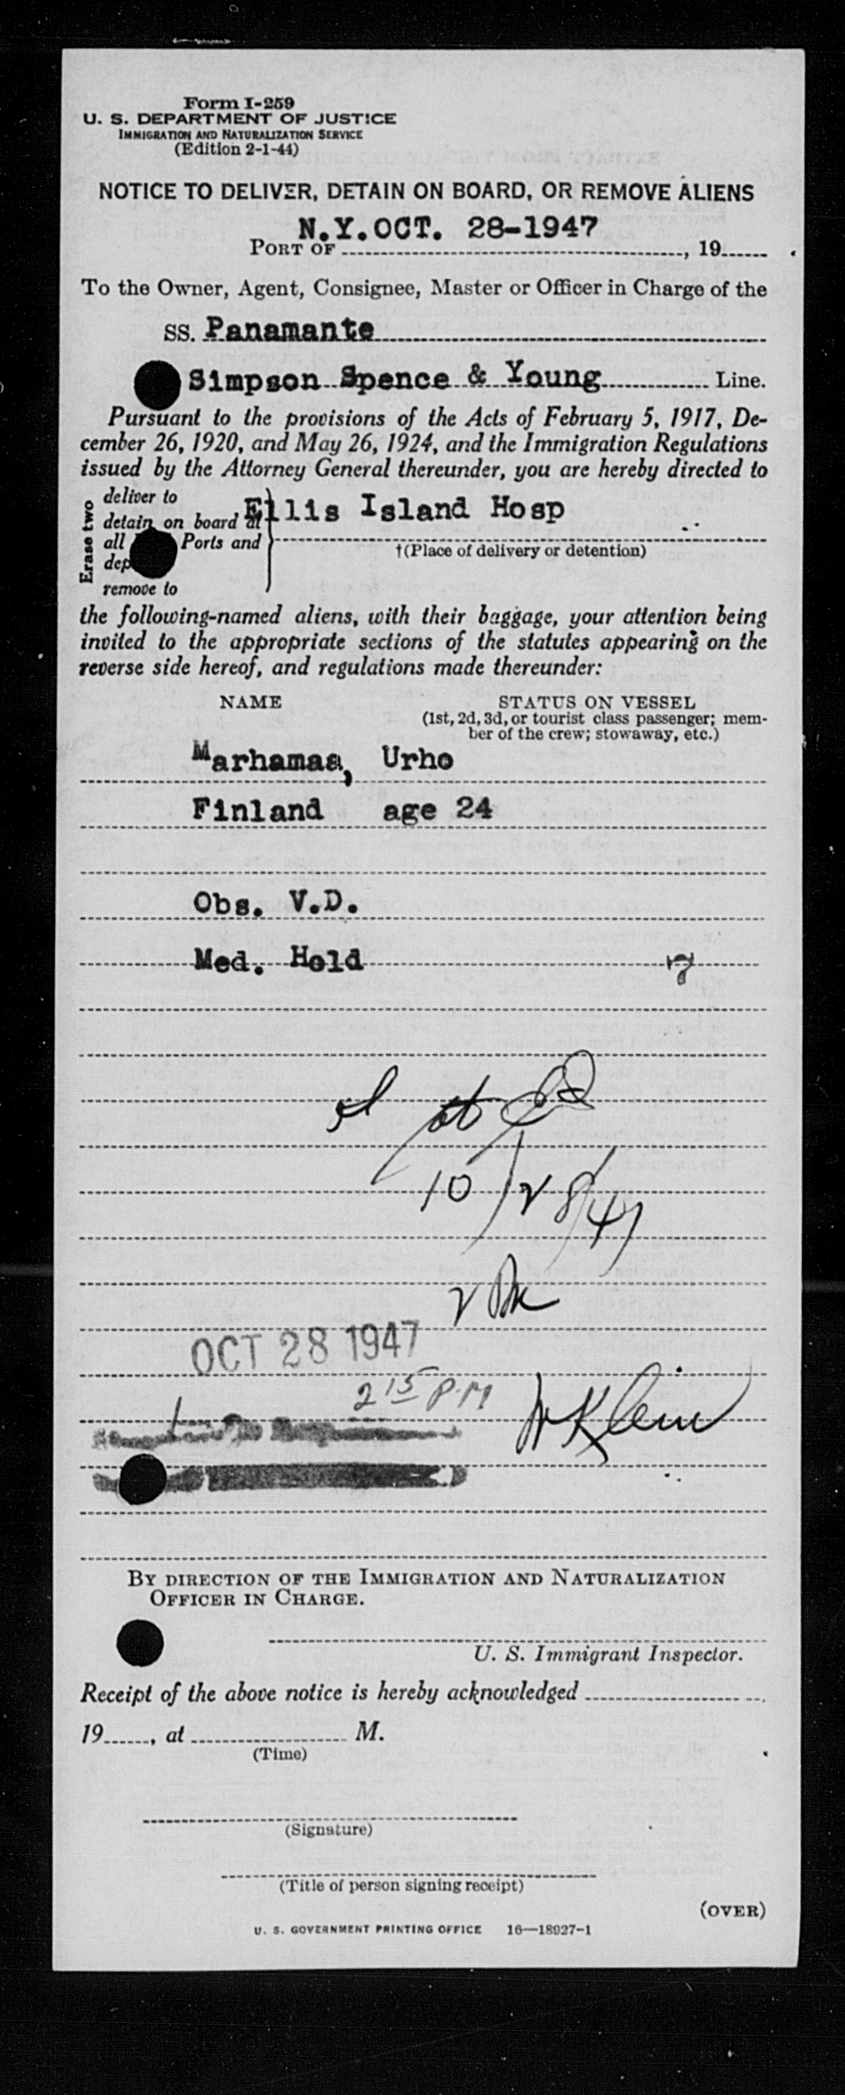 Form I-259
U. S. DEPARTMENT OF JUSTICE
IMMIGRATION AND NATURALIZATION SERVICE
(Edition 2-1-44)
NOTICE TO DELIVER, DETAIN ON BOARD, OR REMOVE ALIENS
N.Y.OCT. 28-1947
PORT OF , 19
To the Owner, Agent, Consignee, Master or Officer in Charge of the
SS. Panamante
Simpson Spence & Young Line.
Pursuant to the provisions of the Acts of February 5, 1917, De-
cember 26, 1920, and May 26, 1924, and the Immigration Regulations
issued by the Attorney General thereunder, you are hereby directed to
Erase two
deliver to
detain on board at Ellis Island Hosp
all Ports and
†(Place of delivery or detention)
remove to
the following-named aliens, with their baggage, your attention being
invited to the appropriate sections of the statutes appearing on the
reverse side hereof, and regulations made thereunder:
NAME STATUS ON VESSEL
(1st, 2d, 3d, or tourist class passenger; mem-
ber of the crew; stowaway, etc.)
Marhamaa, Urho
Finland age 24
Obs. V.D.
Med. Hold
10/28/47
OCT 28 1947
2 15 P.M
W Klein
BY DIRECTION OF THE IMMIGRATION AND NATURALIZATION
OFFICER IN CHARGE.
U. S. Immigrant Inspector.
Receipt of the above notice is hereby acknowledged
19 , at M.
(Time)
(Signature)
(Title of person signing receipt)
(OVER)
U. S. GOVERNMENT PRINTING OFFICE 16—18027-1